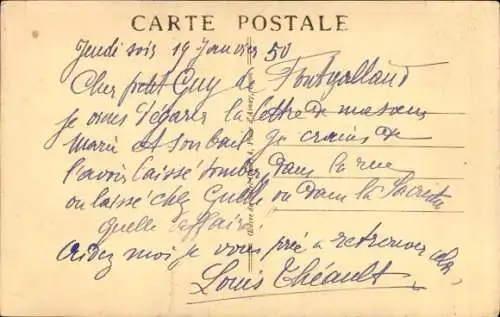 CARTE POSTALE
Jeudi soir 19 Janvier 50
Cher petit Guy de
je viens d'égarer la lettre de ma soeur
Marie et son bail je crains de
l'avoir laissé tomber dans la rue
ou laissé chez ou dans la Sacristie
quelle affaire
Aidez moi je vous prie a retrouver cela
Louis Théault